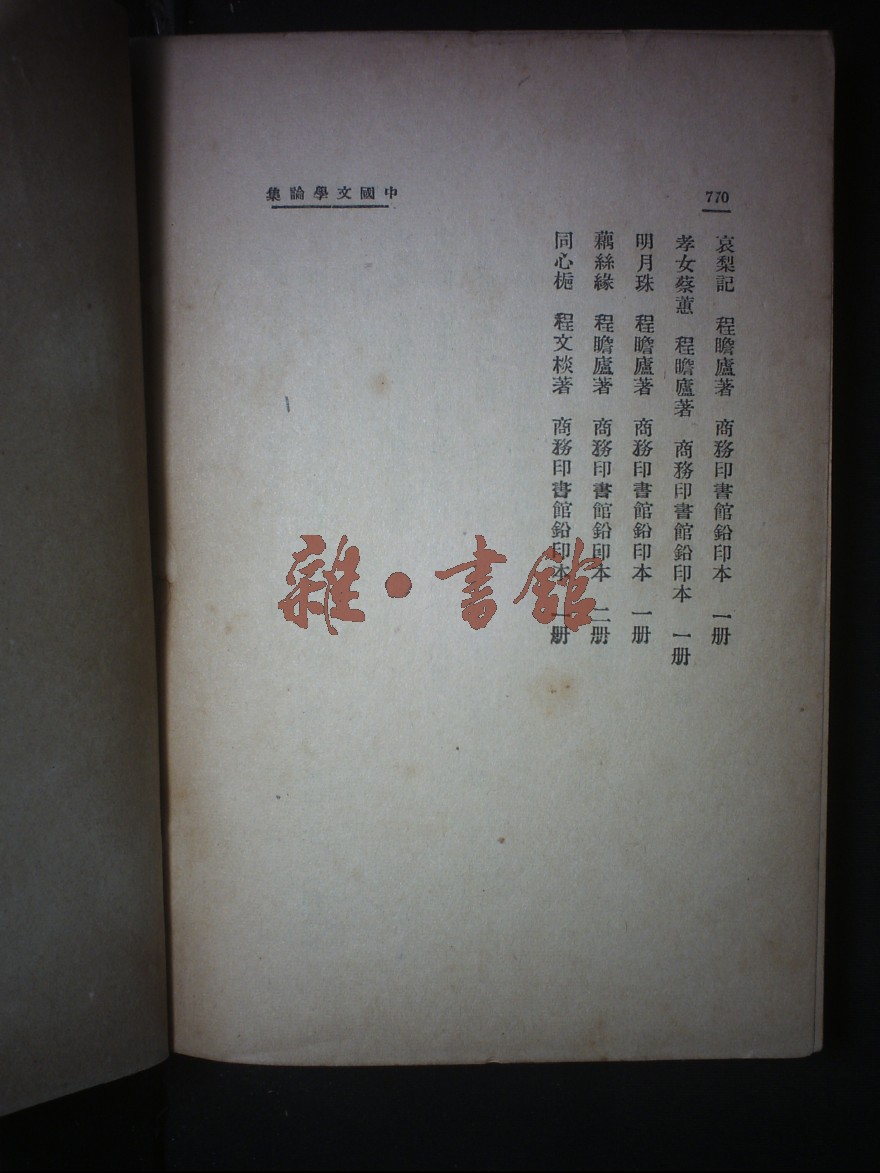 770
中國文學論集
哀梨記　程瞻廬著　商務印書館鉛印本　一册
孝女蔡蕙　程瞻廬著　商務印書館鉛印本　一册
明月珠　程瞻廬著　商務印書館鉛印本　一册
藕絲緣　程瞻廬著　商務印書館鉛印本　二册
同心梔　程文棪著　商務印書館鉛印本　一册
雜·書館